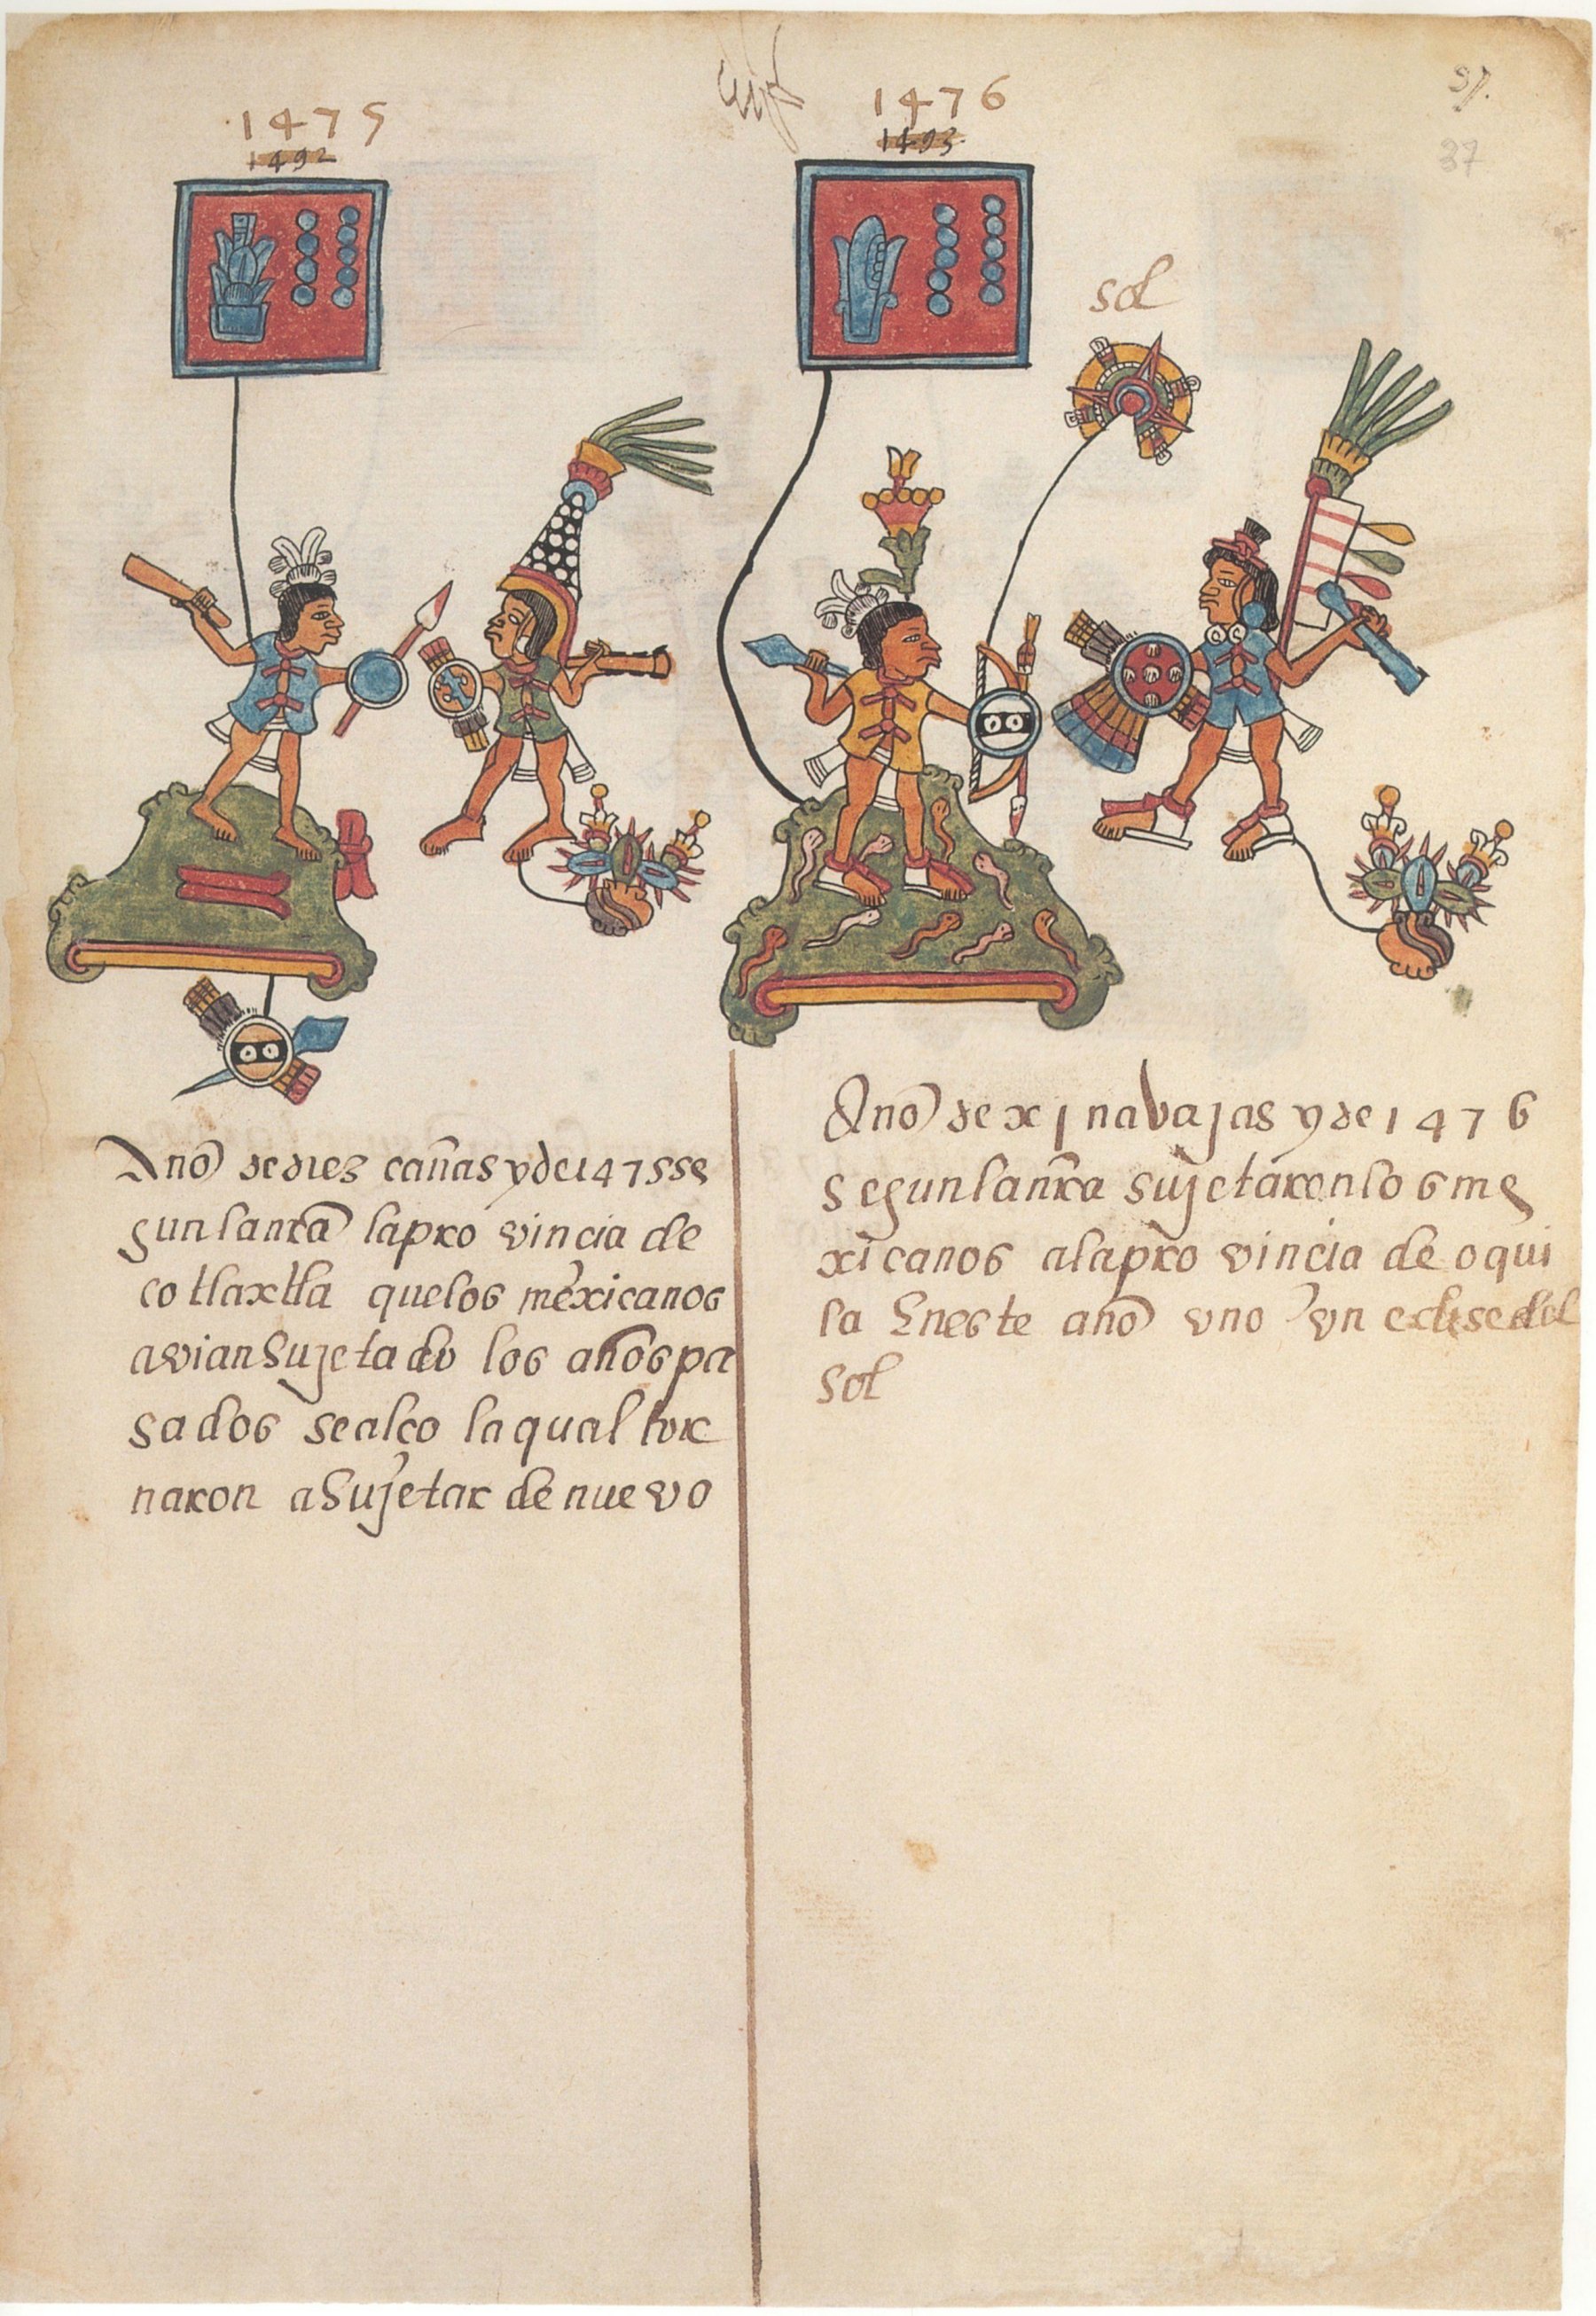 1475
1492
1476
1493
37.
37
sol
Anõ de diez cañas y de 1475 se
gun lanrã la pro vincia de
cotlaxtla que los mexicanos
avian sujetado los años pa
sados se alço la qual tor
naron a sujetar de nuevo
Anõ de x j navajas y de 1476
segun la nr̃a sujetaron los me
xicanos a la pro vincia de oqui
la Eneste anõ vno vn eclise del
sol